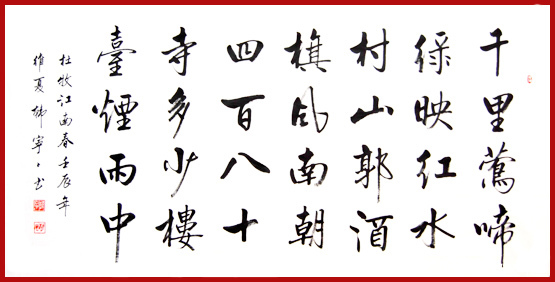 千里莺啼
绿映红水
村山郭酒
旗风南朝
四百八十
寺多少樓
臺煙雨中
杜牧江南春壬辰年
維夏寧书